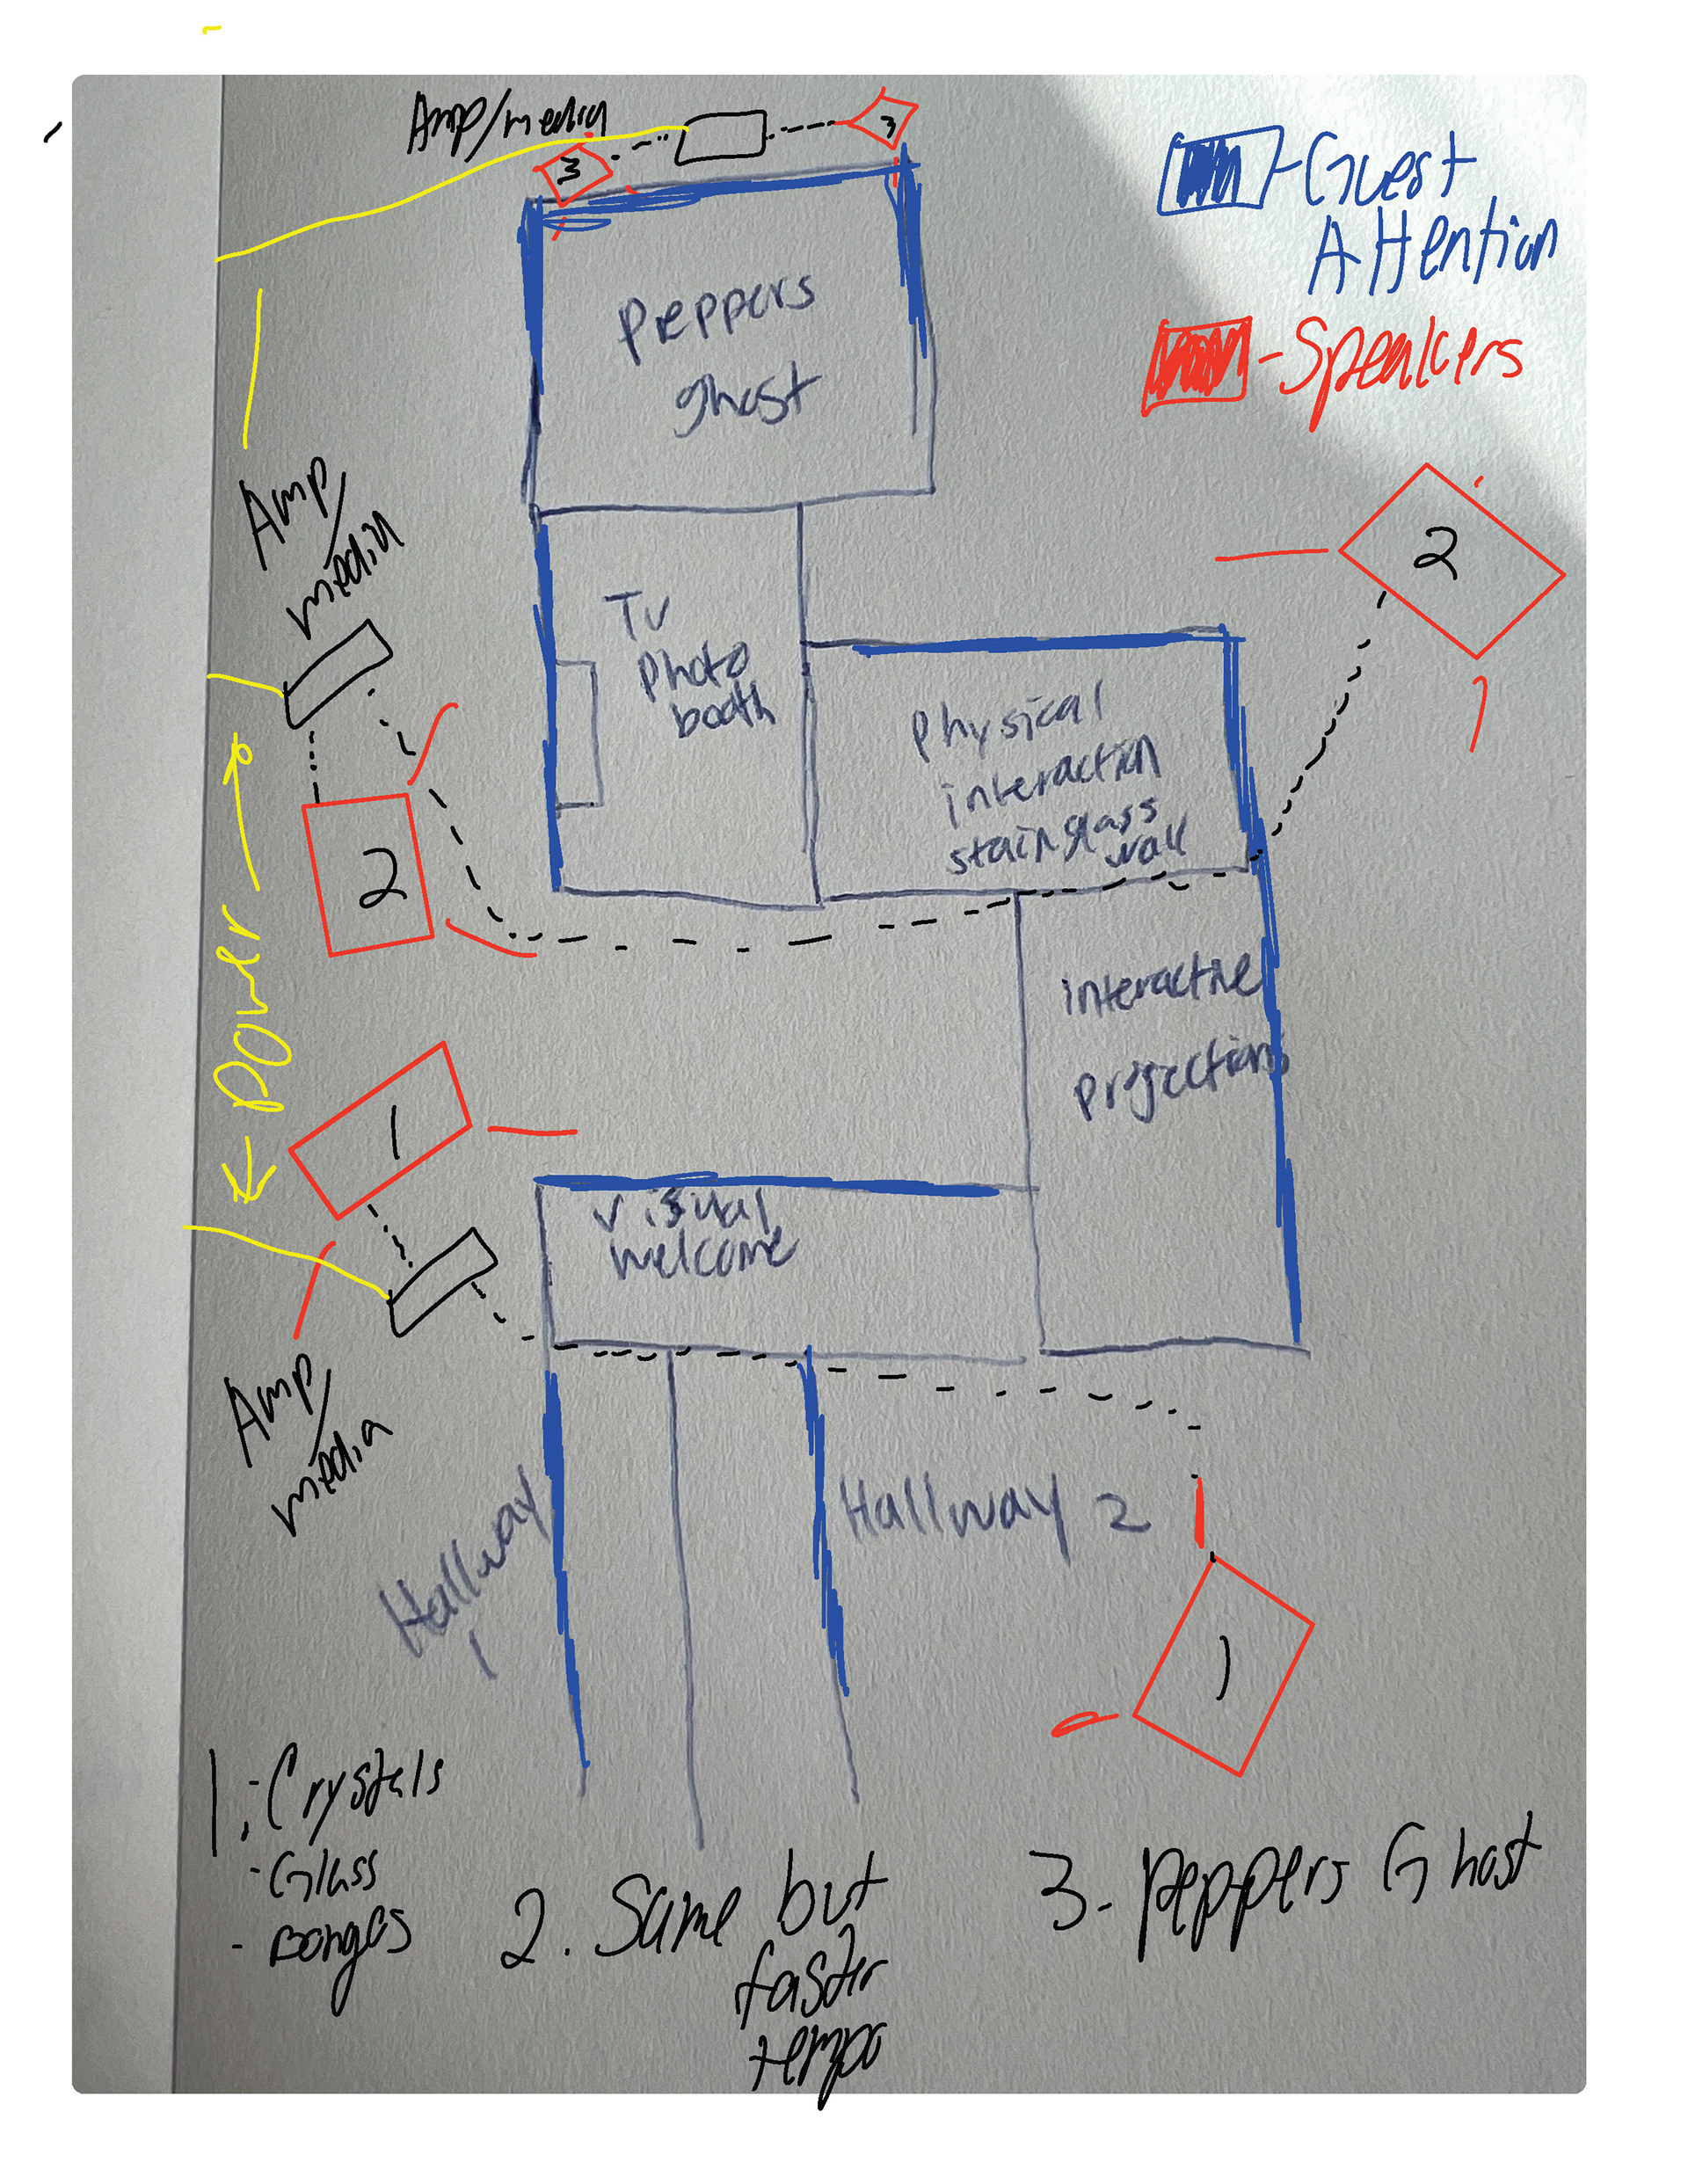 Amp/media
3
3
- Guest
Attention
- Speakers
Peppers
ghost
Amp/
media
2
Tv
Photo
booth
Physical
interaction
stainglass
wall
2
← Power →
interactive
projections
1
visual
welcome
Amp/
media
Hallway
1
Hallway 2
1
1. - Crystals
- Glass
- Bongos
2. Same but
faster
tempo
3- Peppers Ghost